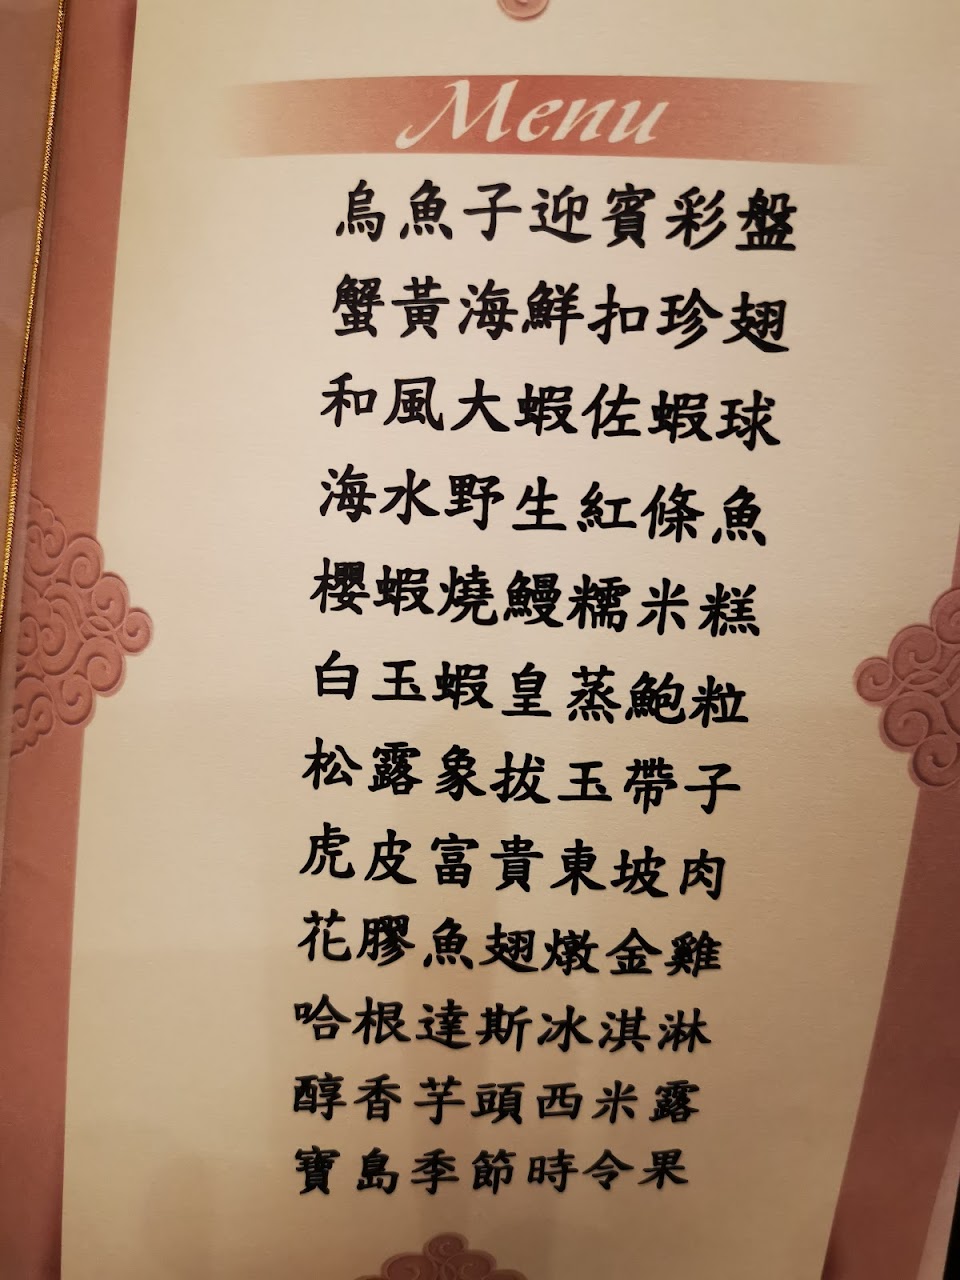 Menu
烏魚子迎賓彩盤
蟹黃海鮮扣珍翅
和風大蝦佐蝦球
海水野生紅條魚
櫻蝦燒鰻糯米糕
白玉蝦皇蒸鮑粒
松露象拔玉帶子
虎皮富貴東坡肉
花膠魚翅燉金雞
哈根達斯冰淇淋
醇香芋頭西米露
寶島季節時令果